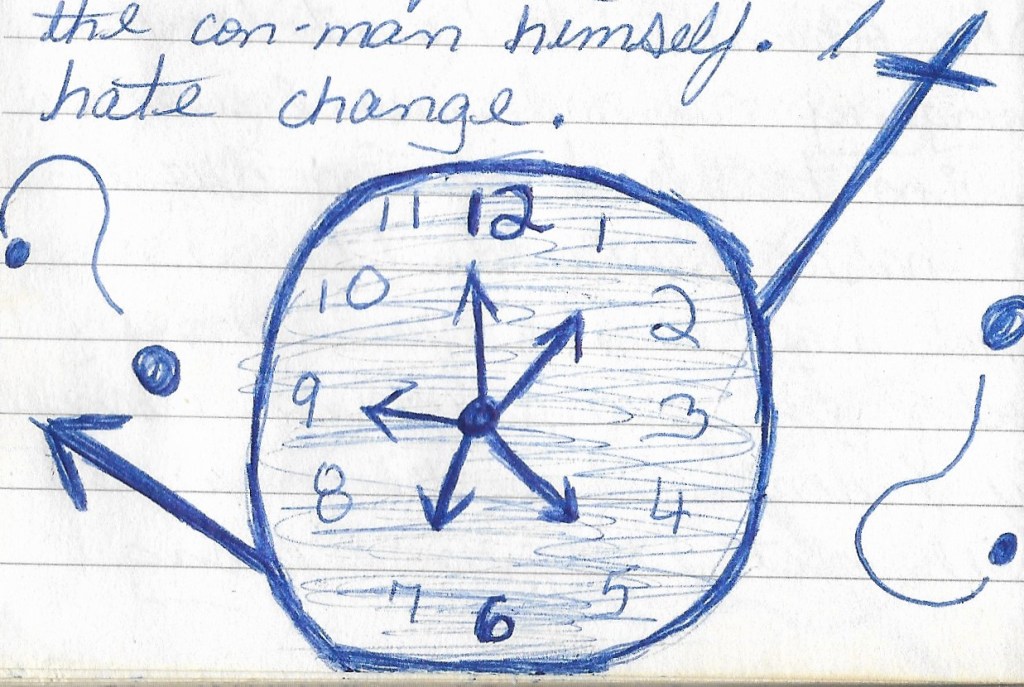 the con-man himself. I
hate change.
11 12 1
10 2
9 3
8 4
7 6 5